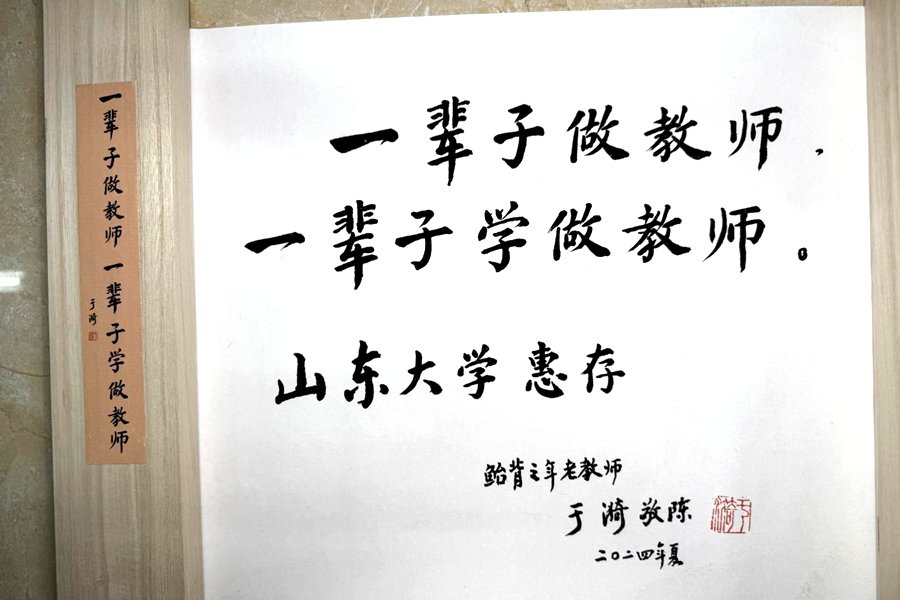 一辈子做教师 一辈子学做教师
于漪
一辈子做教师，
一辈子学做教师。
山东大学 惠存
鲐背之年老教师
于漪敬陈
二〇二四年夏
于漪